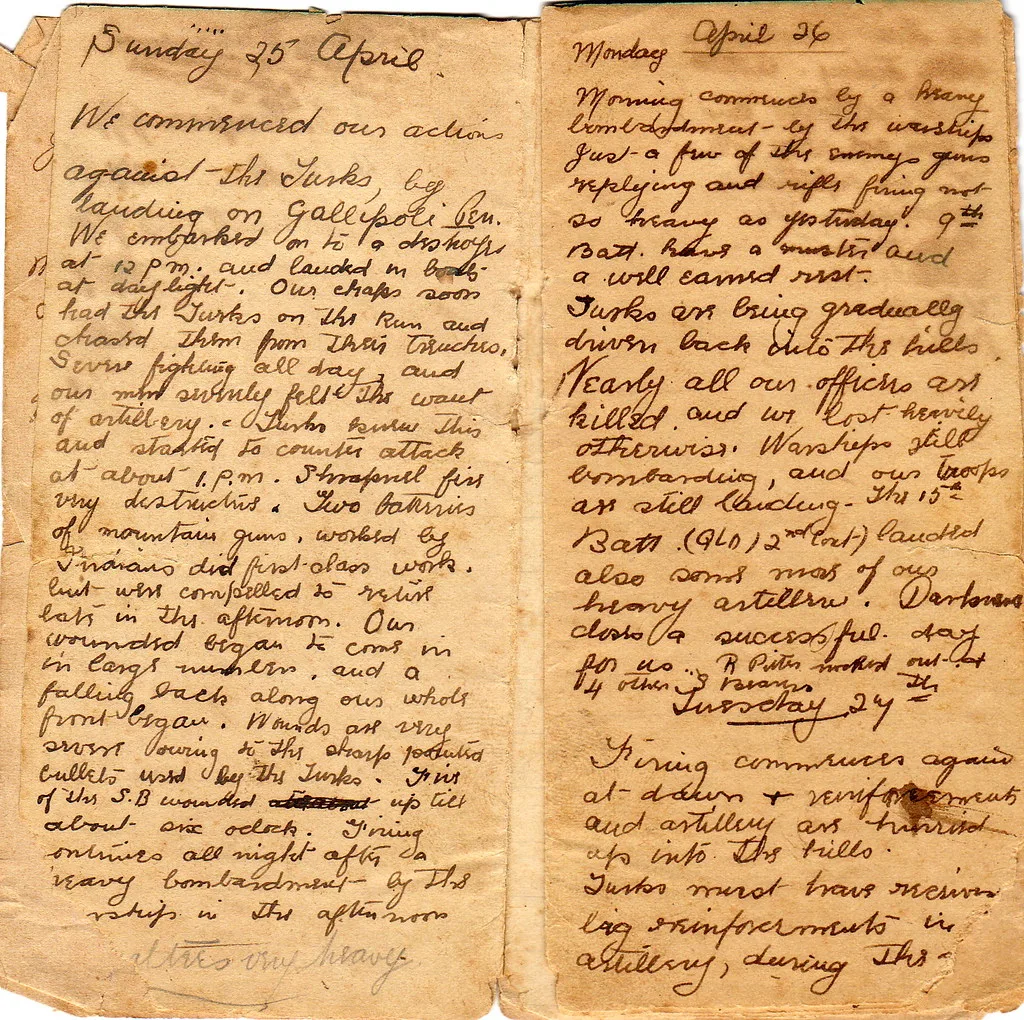 Sunday 25 April.
We commenced our actions
against the Turks, by
landing on Gallipoli Pen.
We embarked on to a destroyer
at 12 p.m. and landed in boats
at daylight. Our chaps soon
had the Turks on the run and
chased them from their trenches.
Severe fighting all day, and
our men severely felt the want
of artillery. Turks knew this
and started to counter attack
at about 1.p.m. Shrapnel fire
very destructive. Two batteries
of mountain guns, worked by
Indians did first-class work.
but were compelled to retire
late in the afternoon. Our
wounded began to come in
in large numbers, and a
falling back along our whole
front began. Wounds are very
severe owing to the sharp pointed
bullets used by the Turks. Five
of the S.B wounded up till
about six oclock. Firing
ontinues all night after a
eavy bombardment by the
rships in the afternoon
very heavy
Monday April 26
Morning commences by a heavy
bombardment by the warships
Just a few of the enemys guns
replying and rifle firing not
so heavy as yesterday. 9th
Batt. have a muster and
a well earned rest.
Turks are being gradually
driven back into the hills.
Nearly all our officers are
killed and we lost heavily
otherwise. Warships still
bombarding, and our troops
are still landing. The 15th
Batt. (QLD) 2nd Cont) landed
also some more of our
heavy artillery. Darkness
closes a successful day
for us. R worked out +
4 other S Bearers
Tuesday 27th
Firing commences again
at dawn + reinforcements
and artillery are hurried
up into the hills.
Turks must have receive
big reinforcements in
artillery, during the